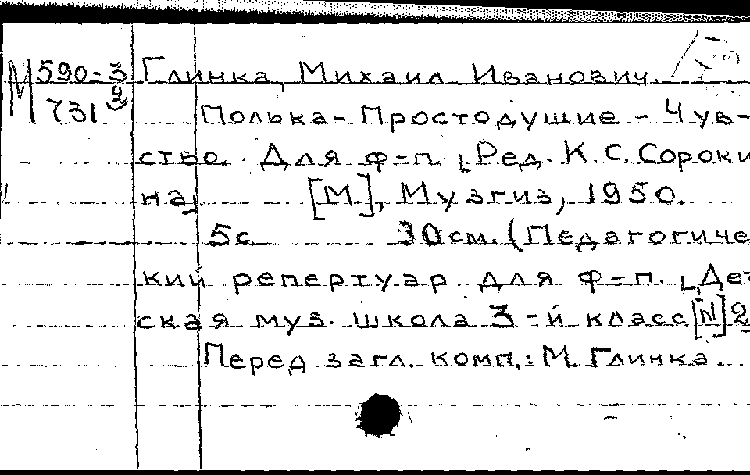 М 590-3 Глинка, Михаил Иванович.
731 Полька- Простодушие - Чув-
ство. Для ф-п. [Ред. К. С. Сороки
на] [М], Музгиз, 1950.
5с 30см. (Педагогиче
кий репертуар для ф-п. [Дет
ская муз. школа 3-й класс [N] 2
Перед загл. комп.: М. Глинка.